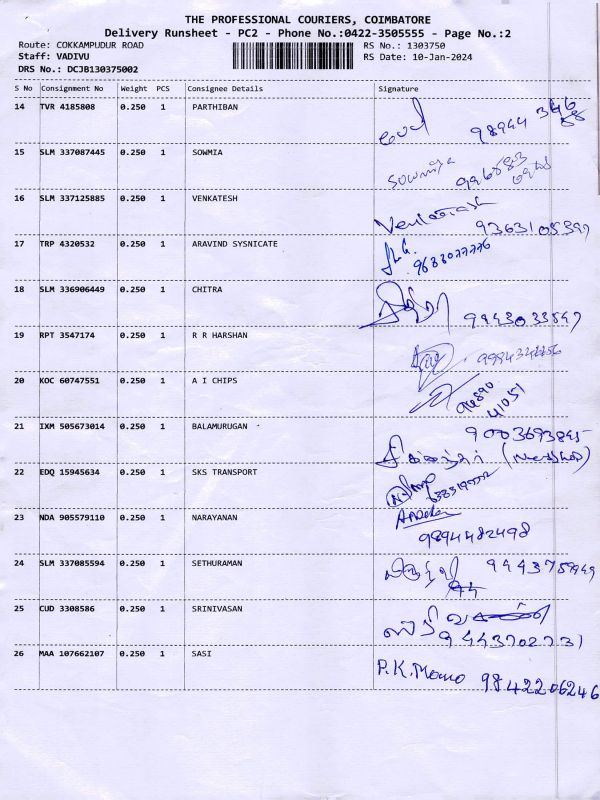 THE PROFESSIONAL COURIERS, COIMBATORE
Delivery Runsheet - PC2 - Phone No.:0422-3505555 - Page No.:2
Route: COKKAMPUDUR ROAD
RS No.: 1303750
Staff: VADIVU
RS Date: 10-Jan-2024
DRS No.: DCJB130375002
S No Consignment No Weight PCS Consignee Details Signature
14 TVR 4185808 0.250 1 PARTHIBAN
15 SLM 337087445 0.250 1 SOWMIA
Sowmiya
16 SLM 337125885 0.250 1 VENKATESH
Venkatesh
9363105397
17 TRP 4320532 0.250 1 ARAVIND SYSNICATE
18 SLM 336906449 0.250 1 CHITRA
சித்ரா
9943033547
19 RPT 3547174 0.250 1 R R HARSHAN
20 KOC 60747551 0.250 1 A I CHIPS
94890
41051
21 IXM 505673014 0.250 1 BALAMURUGAN
22 EDQ 15945634 0.250 1 SKS TRANSPORT
23 NDA 905579110 0.250 1 NARAYANAN
9894482498
24 SLM 337085594 0.250 1 SETHURAMAN
25 CUD 3308586 0.250 1 SRINIVASAN
9443702731
26 MAA 107662107 0.250 1 SASI
P.K. Mano 9842206246